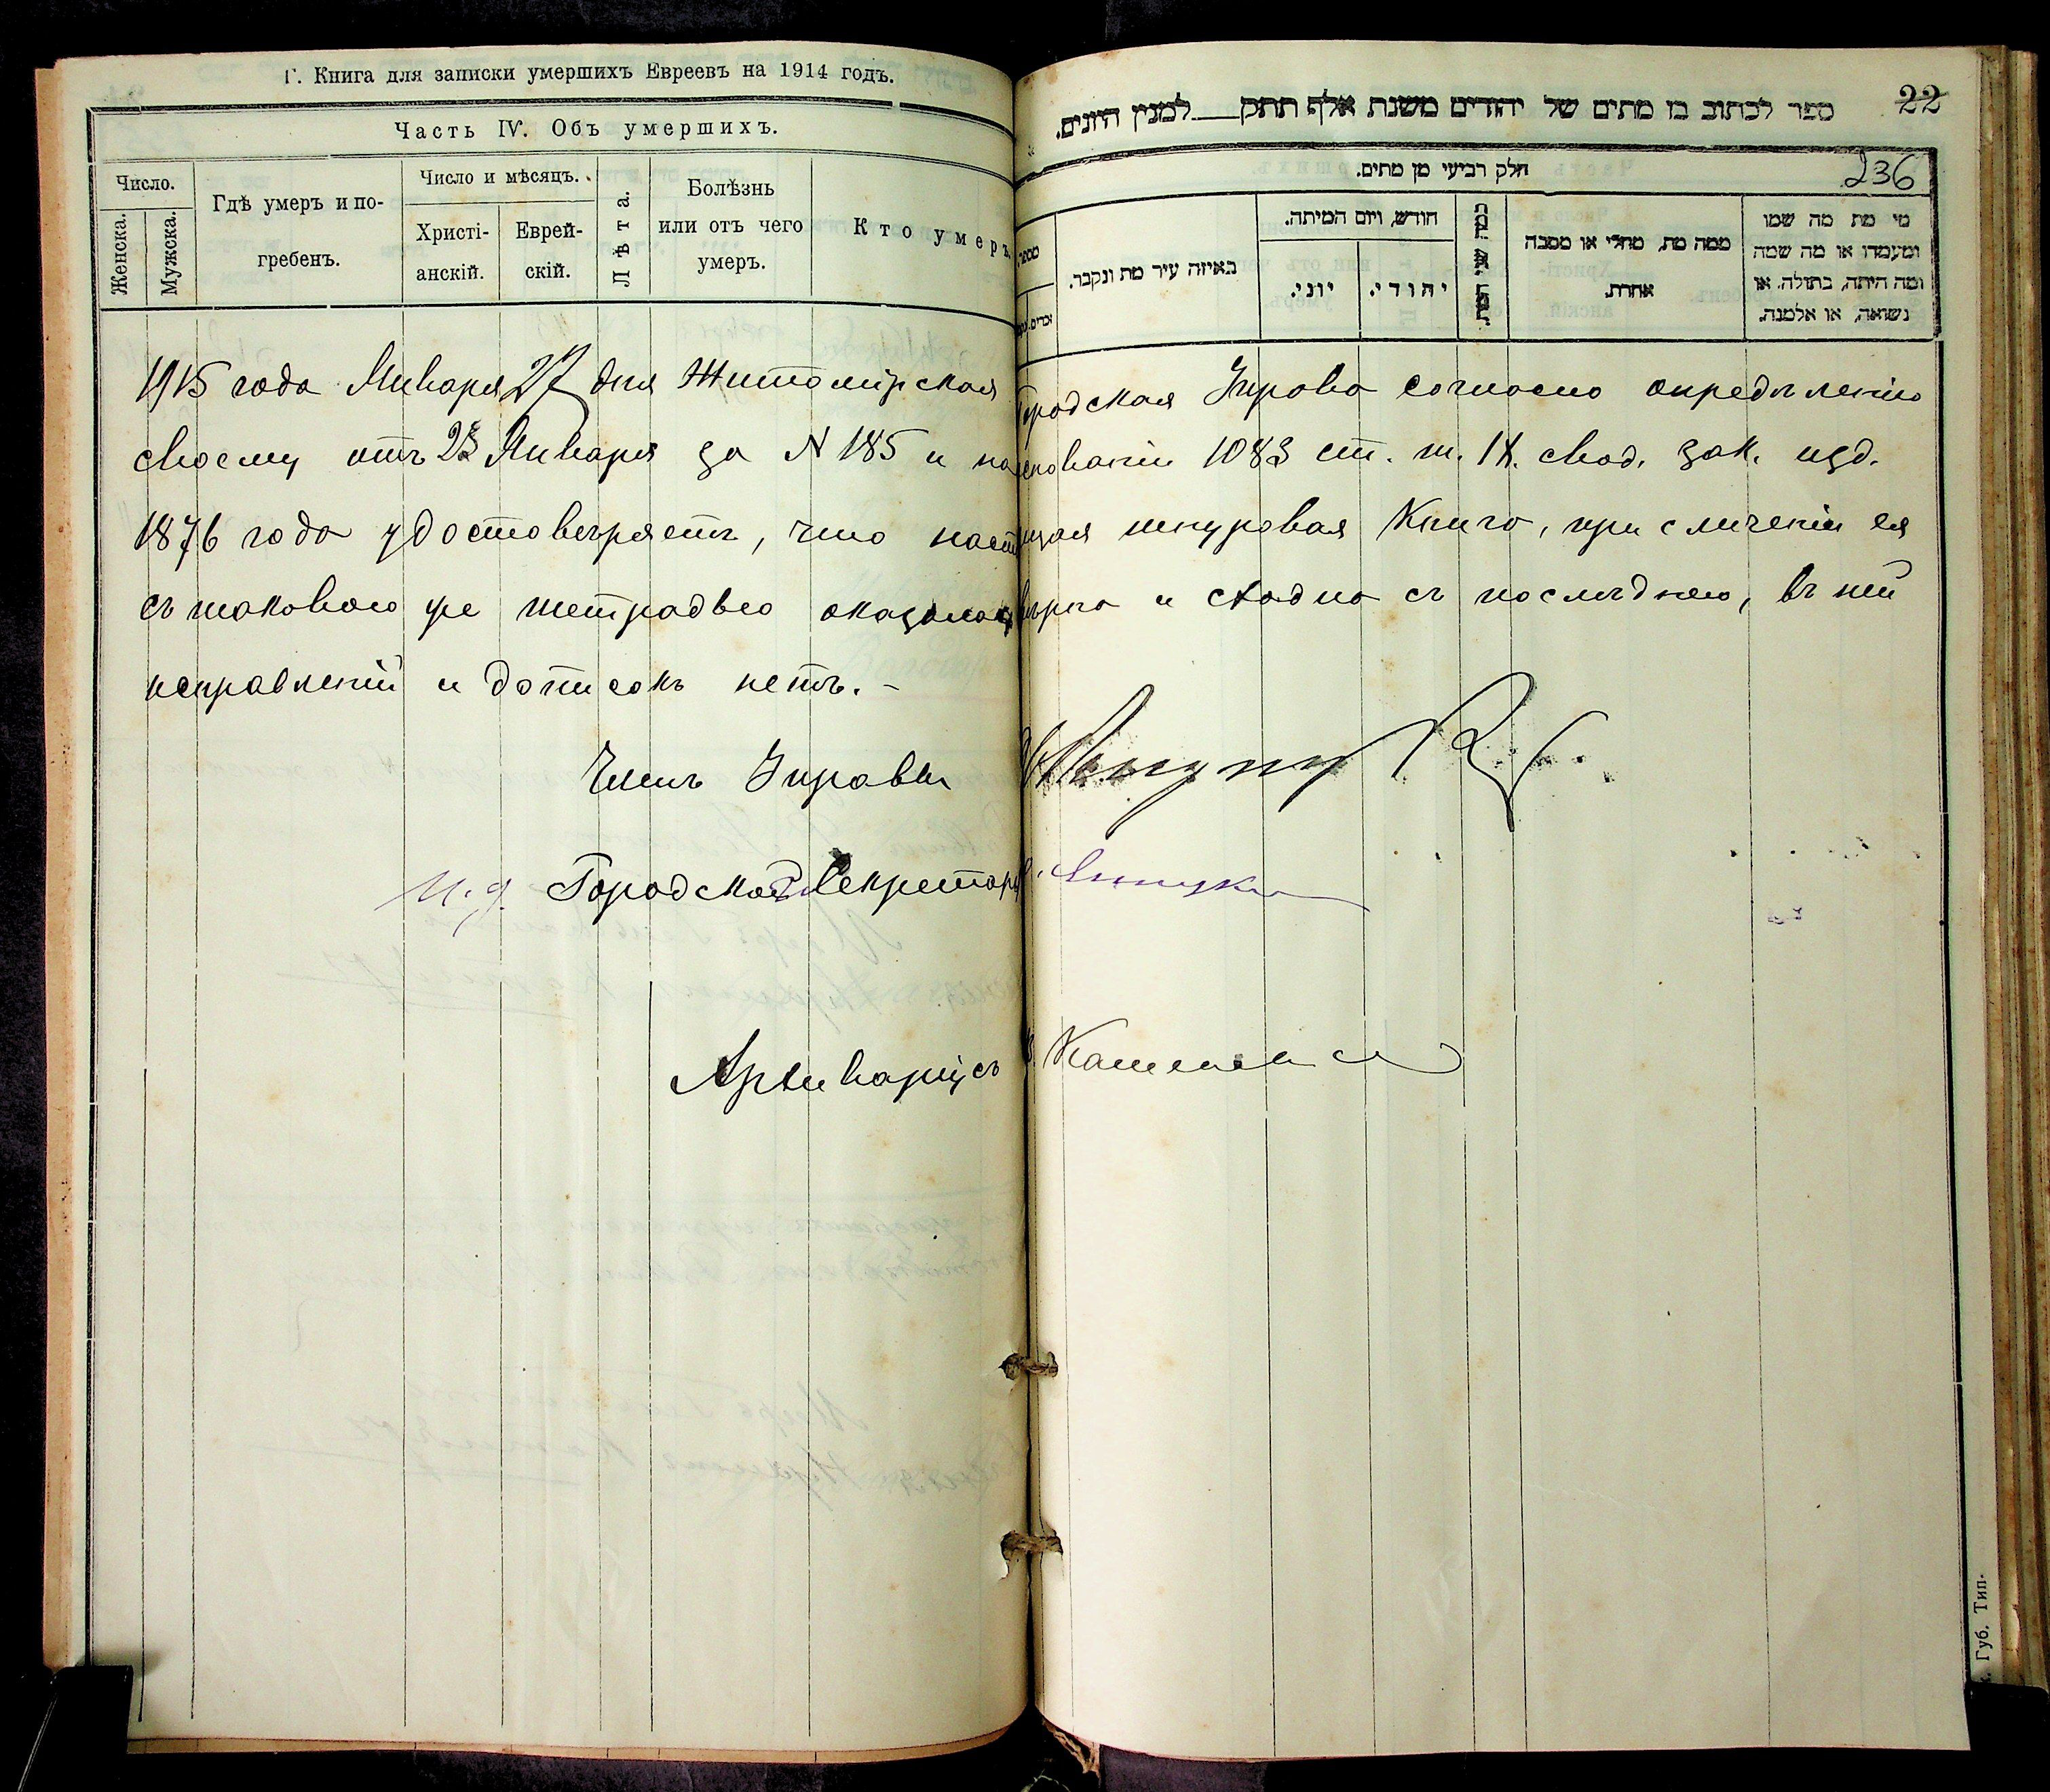 Г. Книга для записки умершихъ Евреевъ на 1914 годъ.
Часть IV. Объ умершихъ.
Число.
Женска.
Мужска.
Гдѣ умеръ и по-
гребенъ.
Число и мѣсяцъ.
Христі-
анскій.
Еврей-
скій.
Лѣта.
Болѣзнь
или отъ чего
умеръ.
Кто умеръ.
22
ספר לכתוב בו מתים של יהודים משנת אלף תתק למנין היונים.
236
חלק רביעי מן מתים.
באיזה עיר מת ונקבר.
חודש, ויום המיתה.
יוני.
יהודי.
ממה מת, מחלי או מסבה
אחרת.
מי מת מה שמו
ומעמדו או מה שמה
ומה היתה, בתולה, או
נשואה, או אלמנה.
1915 года Января 27 дня Житомірская Городская Управа согласно опредѣленію
своему отъ 23 Января за N 185 и на основаніи 1083 ст. т. IX. свод. зак. изд.
1876 года удостовѣряетъ, что настоящая шнуровая книга, при сличеніи ея
съ таковою же тетрадью оказалась вѣрна и сходна съ послѣднею, въ ней
исправленій и дописокъ нетъ.-
Членъ Управы
И.д. Городской Секретарь
Архиваріусъ
Губ. Тип.